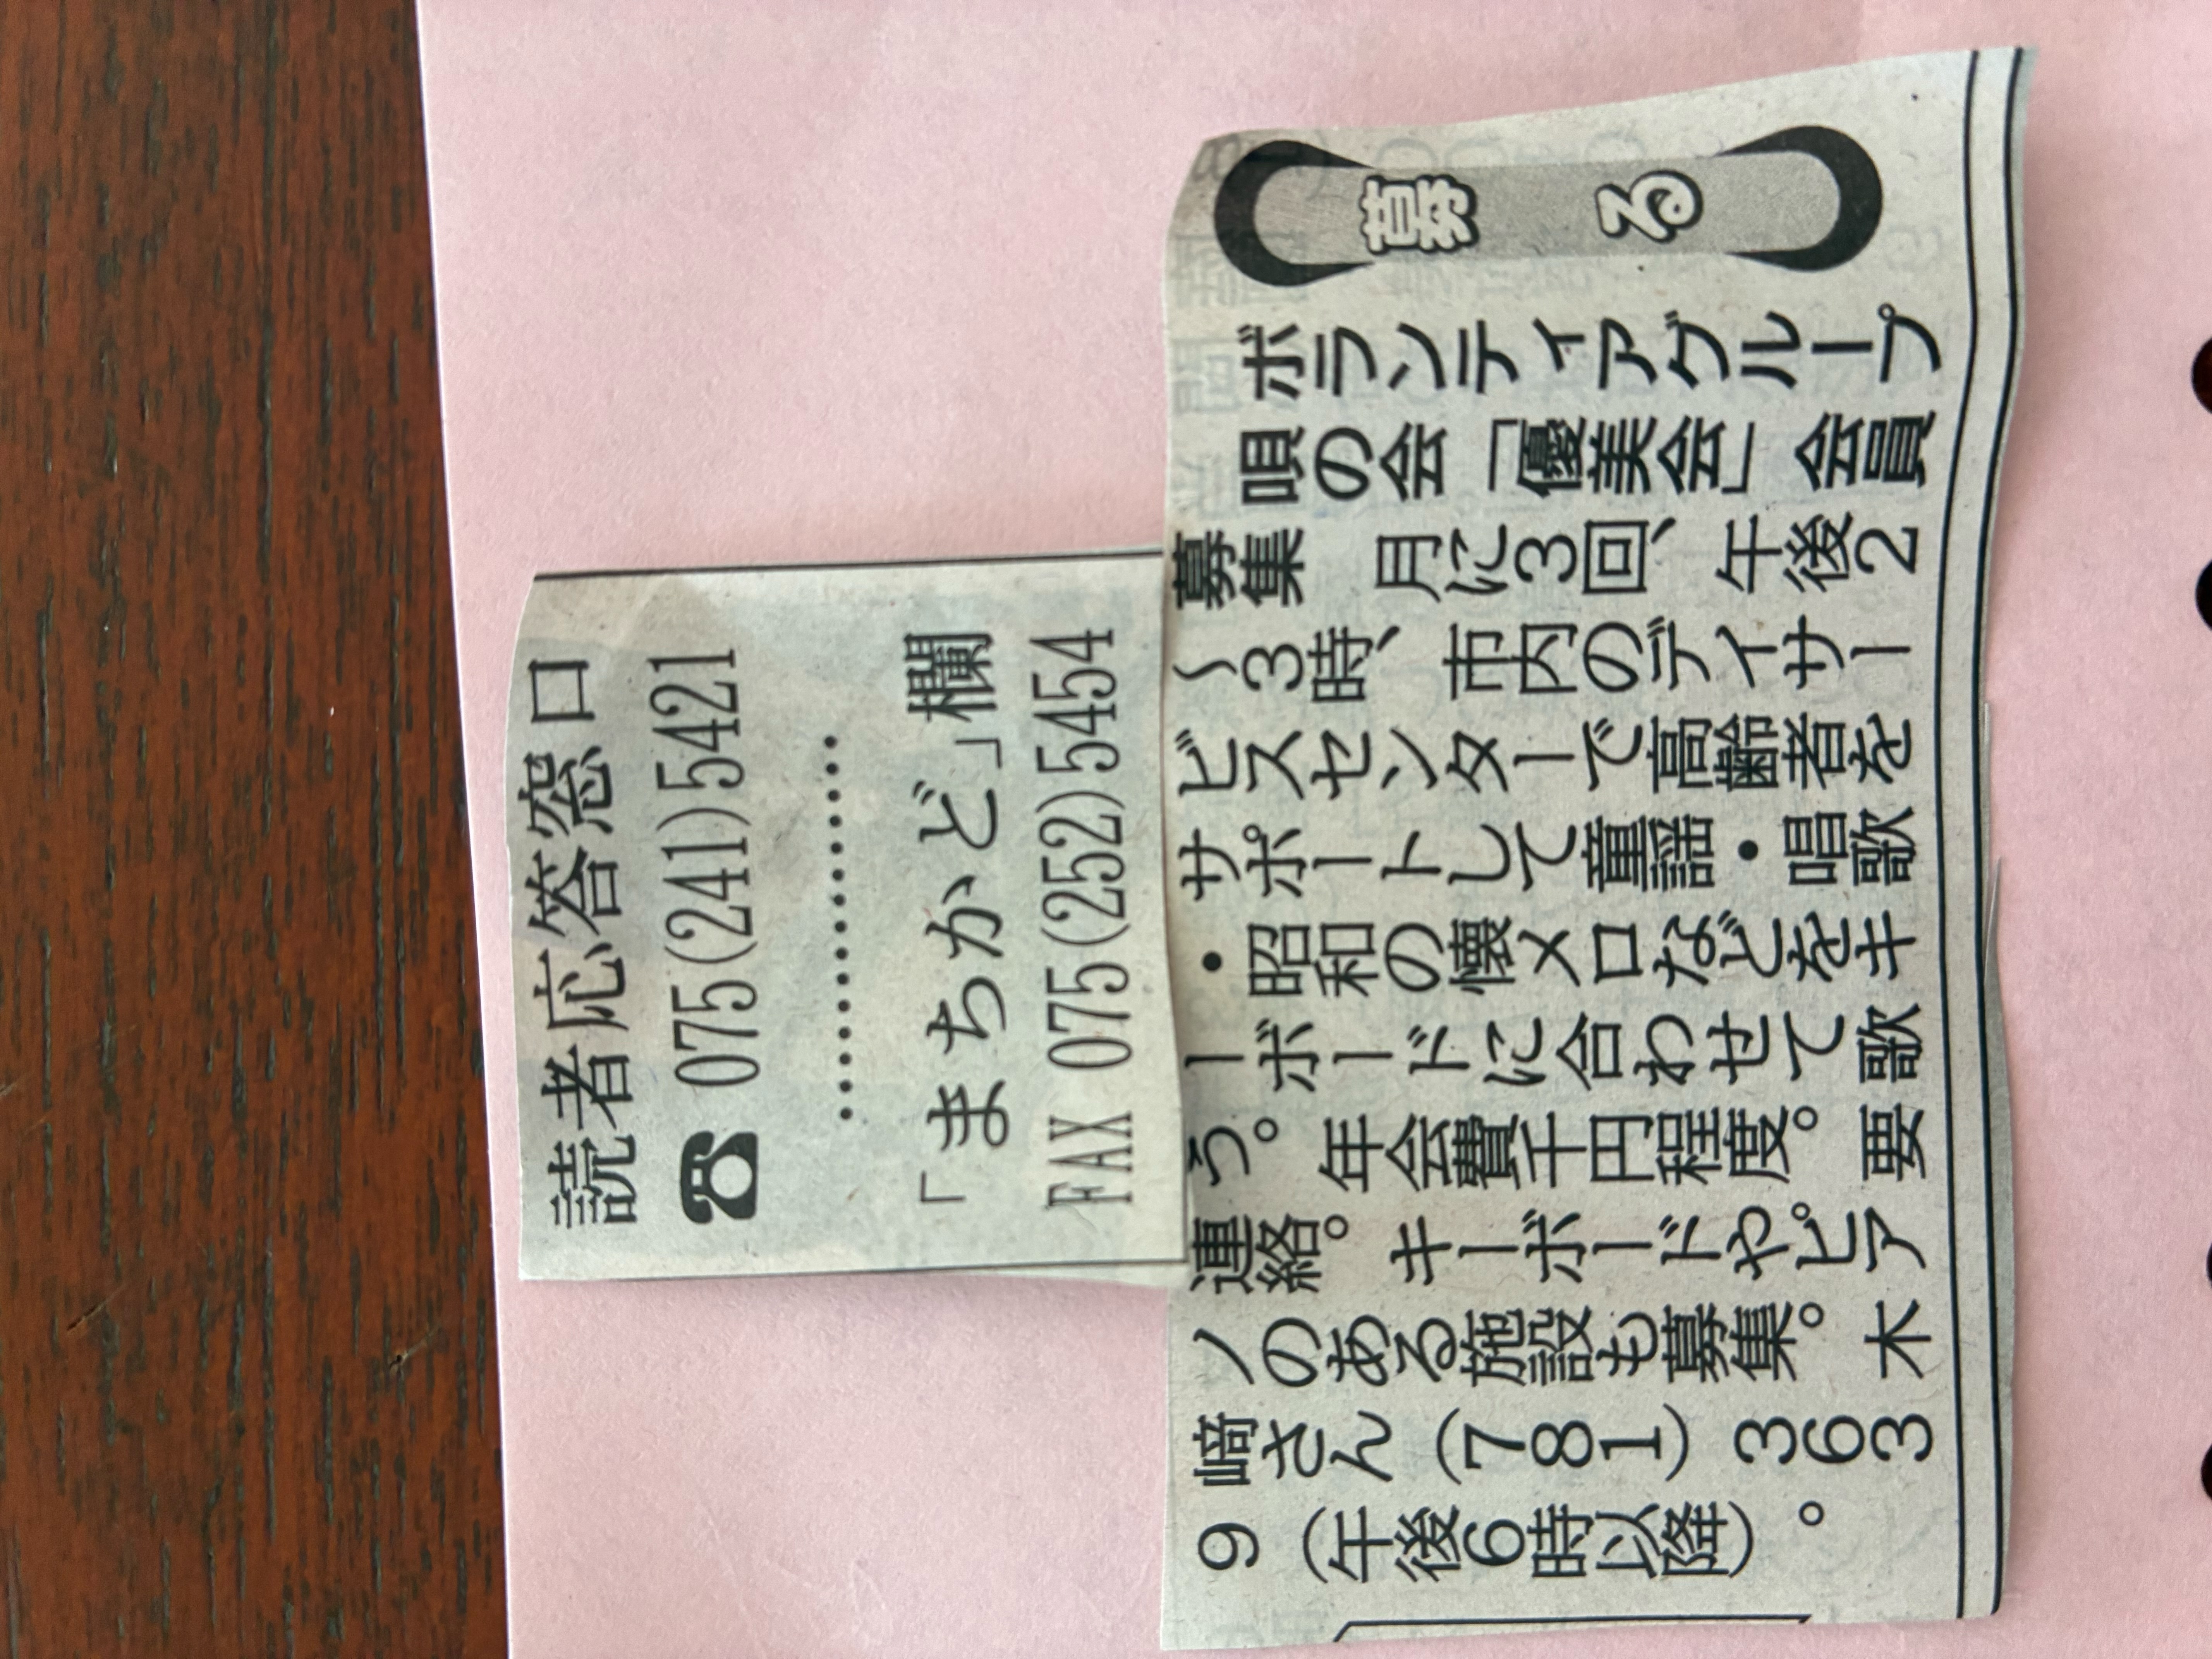 読者応答窓口
☎ 075(241)5421
……………
「まちかど」欄
FAX 075(252)5454
募る
ボランティアグループ
唄の会「優美会」会員
募集　月に3回、午後2
〜3時、市内のデイサー
ビスセンターで高齢者を
サポートして童謡・唱歌
・昭和の懐メロなどをキ
ーボードに合わせて歌
う。年会費千円程度。要
連絡。キーボードやピア
ノのある施設も募集。木
﨑さん（781）363
9（午後6時以降）。